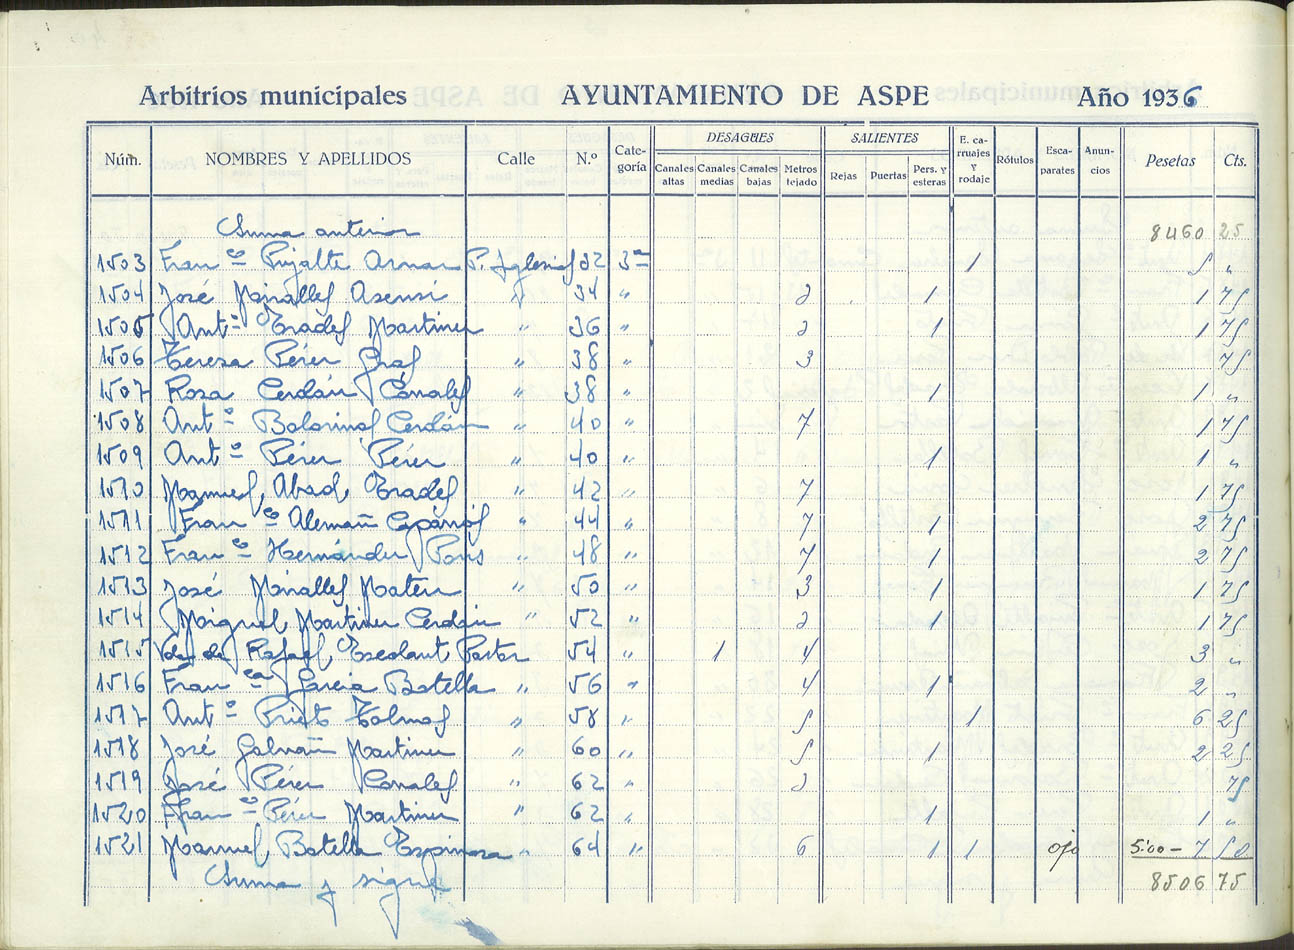 Arbitrios municipales AYUNTAMIENTO DE ASPE Año 1936
Núm. NOMBRES Y APELLIDOS Calle N.º Cate-goría DESAGÜES Canales altas Canales medias Canales bajas Metros tejado SALIENTES Rejas Puertas Pers. y esteras E. ca-rruajes y rodaje Rótulos Esca-parates Anun-cios Pesetas Cts.
Suma anterior 8460 25
1503 Fran co Pujalte Aznar P. Iglesias 32 3ª 1 5 "
1504 José Mirallas Asensi " 34 " 2 1 1 75
1505 Ant.º Prades Martinez " 36 " 2 1 1 75
1506 Teresa Pérez Gras " 38 " 3 75
1507 Rosa Cerdán Cánales " 38 " 1 1 "
1508 Ant.º Cerdán " 40 " 7 1 75
1509 Ant.º Pérez Pérez " 40 " 1 1 "
1510 Manuel Abad Prades " 42 " 7 1 75
1511 Fran co Alemañ Caparrós " 44 " 7 1 2 75
1512 Fran co Hernández Pons " 48 " 7 1 2 75
1513 José Miralles Mateu " 50 " 3 1 1 75
1514 Miguel Martinez Cerdán " 52 " 2 1 1 75
1515 Vda de Rafael Escolant Pastor " 54 " 1 4 3 "
1516 Fran ca Garcia Botella " 56 " 4 1 2 "
1517 Ant.º Prieto " 58 " 5 1 6 25
1518 José Galvañ Martinez " 60 " 5 1 2 25
1519 José Pérez Canales " 62 " 3 75
1520 Fran co Pérez Martinez " 62 " 1 1 "
1521 Manuel Botella Espinosa " 64 " 6 1 1 ojo 5'00 - 7 50
Suma y sigue 8506 75